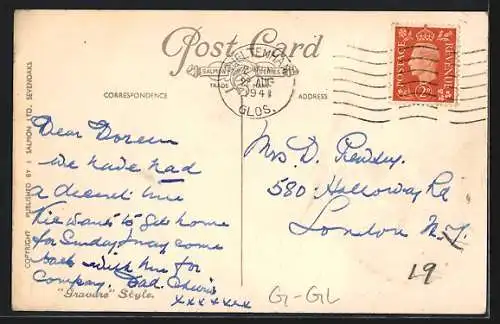 Post Card
SALMON SERIES
TRADE MARK
CORRESPONDENCE
ADDRESS
CHELTENHAM
AUG
1941
GLOS.
POSTAGE
REVENUE
2D
COPYRIGHT PUBLISHED BY J SALMON LTD., SEVENOAKS
Dear Doreen
we have had
a decent time
wants to get home
for Sunday may come
back with him for
Company. Dad.
xxxxxxx
"Gravure" Style.
Mrs D.
580 Holloway Rd
London N.7
19
G-GL